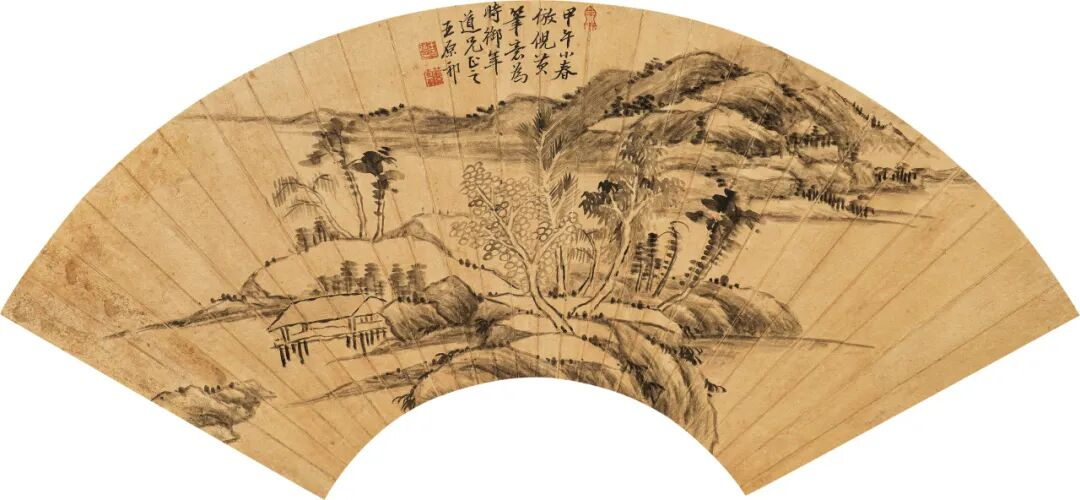 甲午小春
倣倪黄
筆意為
時御年
道兄正之
王原祁